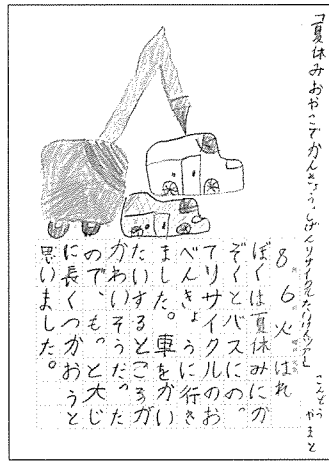 「夏休みおやこでかんきょう・しげんリサイクルたいけんツアー」
こんどう やまと
8月6日火曜日 はれ
ぼくは夏休みにか
ぞくとバスにのっ
てリサイクルのお
べんきょうに行き
ました。車をかい
たいするところが
かわいそうだった
ので、もっと大じ
に長くつかおうと
思いました。